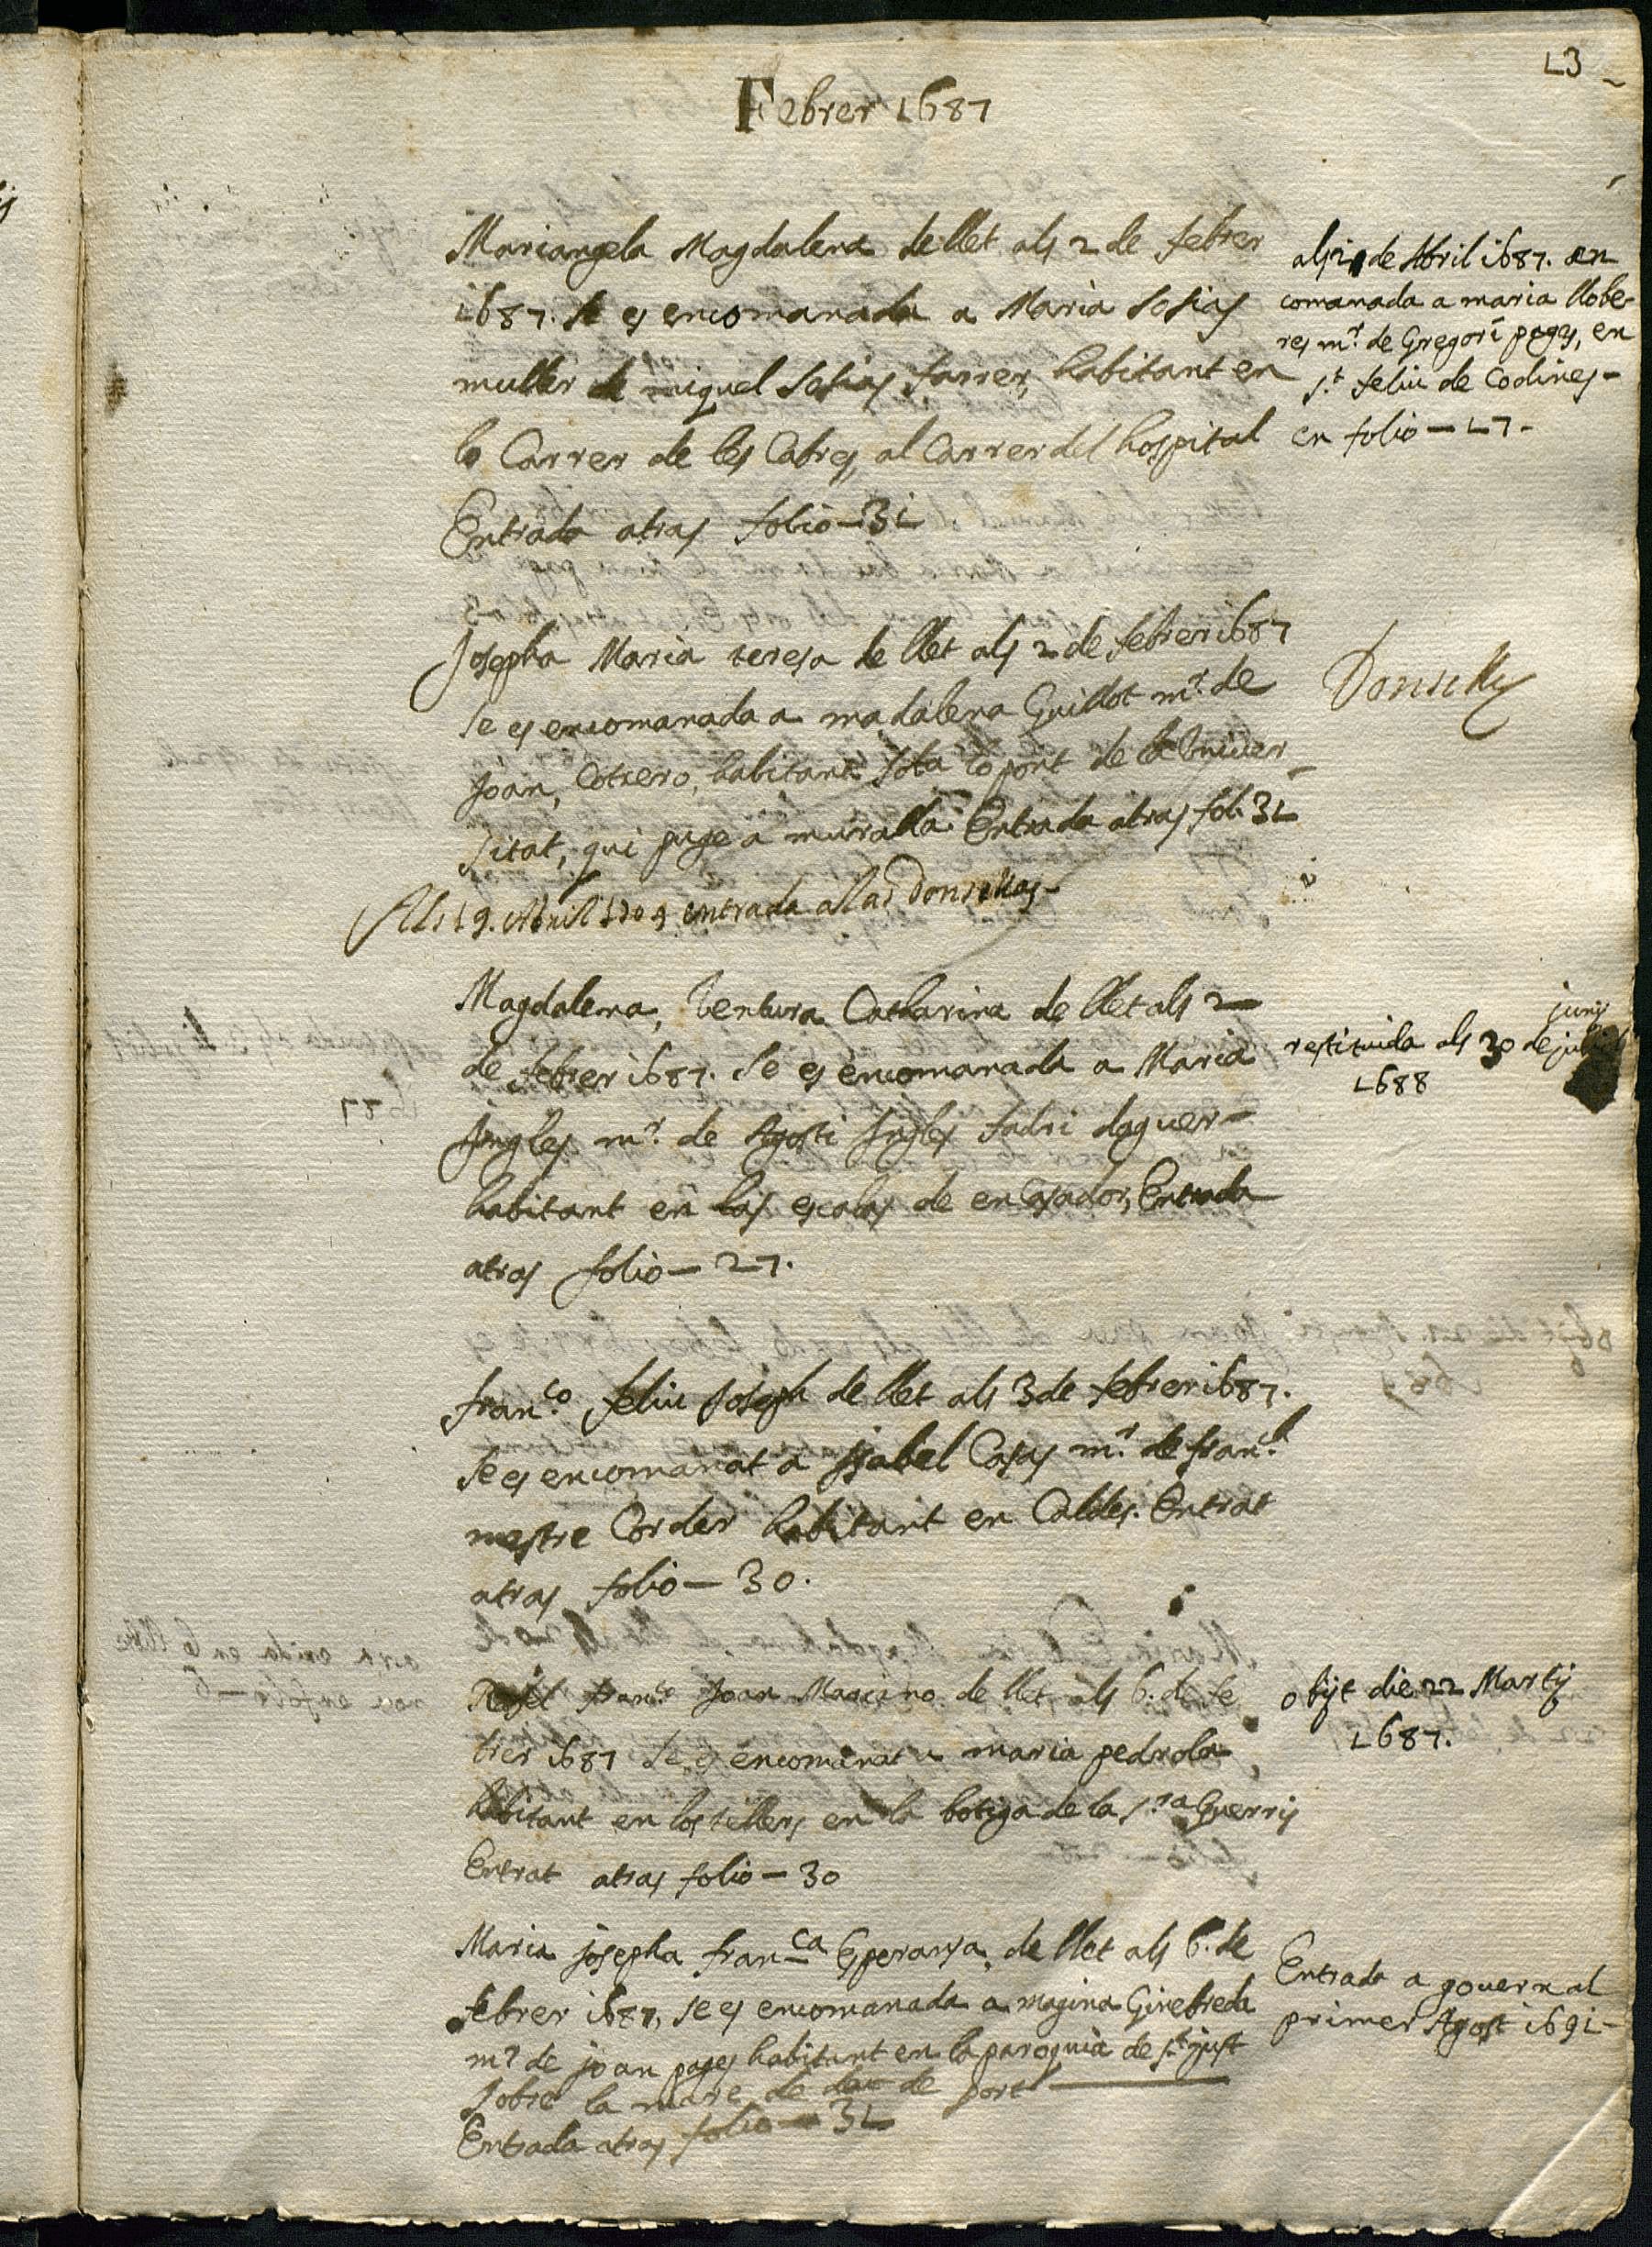 13
Febrer 1687
Mariangela Magdalena de llet als 2 de febrer
1687. se es encomanada a Maria Sosias
muller de miquel Sosias farrer, habitant en
lo Carrer de les Cabres, al Carrer del hospital
Entrada atras folio - 31
als de Abril 1687. en
comanada a maria llobe-
res mr. de Gregori pages, en
st. feliu de Codines -
en folio - 17 -
Josepha Maria teresa de llet als 2 de febrer 1687
se es encomanada a madalena Guillot mr. de
Joan, Cotxero, habitant sota lo pont de la Vniuer
sitat, qui puge a muralla Entrada atras fol. 31
Als 19. Abril 1709 entrada a las Donsellas -
Magdalena, Ventura Catharina de llet als 2
de febrer 1687. se es encomanada a Maria
Ingles mr. de Agosti Ingles fadri daguer
habitant en las escalas de en Casador, Entrada
atras folio - 27.
juny
restituida als 30 de
1688
franco. feliu Joseph de llet als 3 de febrer 1687.
se es encomanat a Isabel Casas mr. de franch.
mestre Corder habitant en Caldes. Entrat
atras folio - 30.
franco Joan Macia no. de llet als 6. de fe
brer 1687 se es encomanat a maria pedrola
habitant en los tellers en la botiga de la sra Guerris
Entrat atras folio - 30
obijt die 22 Martij
1687.
Maria josepha franca Esperansa de llet als 6. de
febrer 1687, se es encomanada a magina Ginebreda
mr de joan pages habitant en la paroquia de st. just
sobre la mare de deu de port
Entrada atras folio - 31
Entrada a gouern al
primer Agost 1691 -